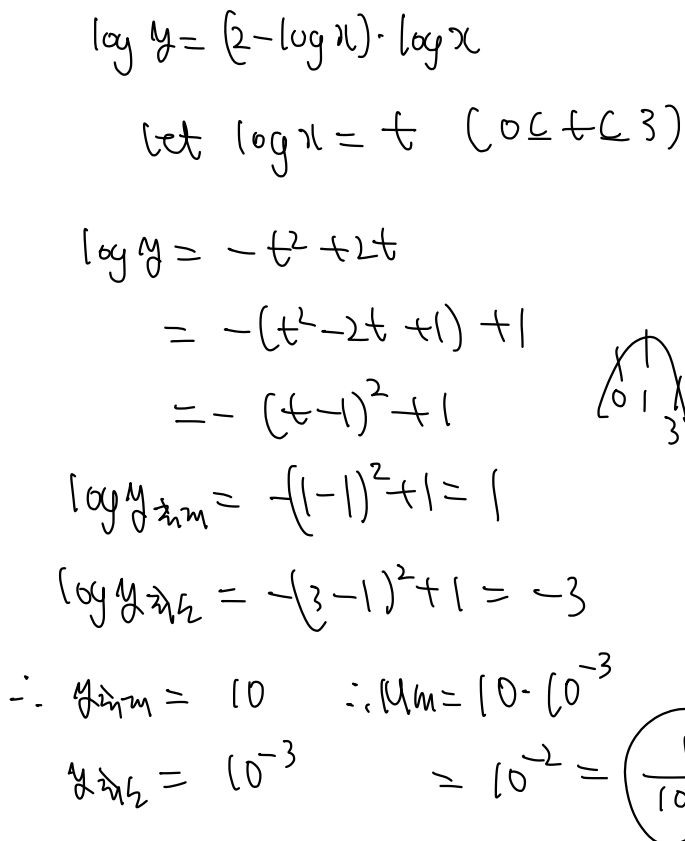 log y = (2-log x)·log x
let log x = t (0 ≤ t ≤ 3)
log y = -t² + 2t
= -(t²-2t+1)+1
= -(t-1)²+1
0 1 3
log y최대 = -(1-1)²+1 = 1
log y최소 = -(3-1)²+1 = -3
∴ y최대 = 10 ∴ Mm = 10·10⁻³
y최소 = 10⁻³ = 10⁻² =